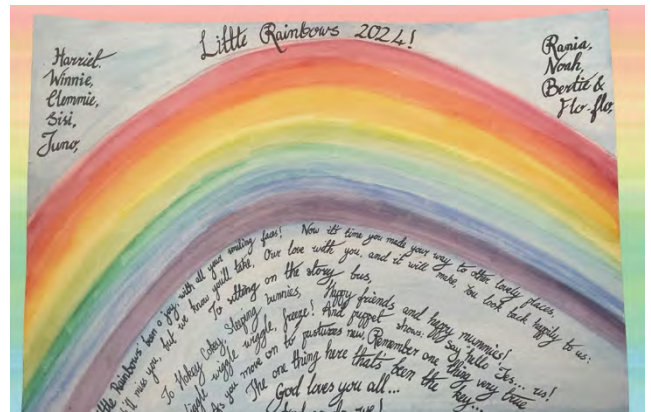 Little Rainbows 2024!
Harriet.
Winnie,
Clemmie,
Sisi,
Juno,
Rania,
Noah,
Bertie &
Flo-flo,
Little Rainbows' been a joy, with all your smiling faces! Now it's time you made your way to other lovely places,
We'll miss you, but we know you'll take, Our love with you, and it will more, You look back happily to us:
To sitting on the story bus,
To Hokey Cokey, Sleeping bunnies, Happy friends and happy mummies!
wiggle wiggle, freeze! And puppet shows: they say, 'hello
As you move on to pastures new, Remember one thing very true
The one thing here thats been the key...
God loves you all...